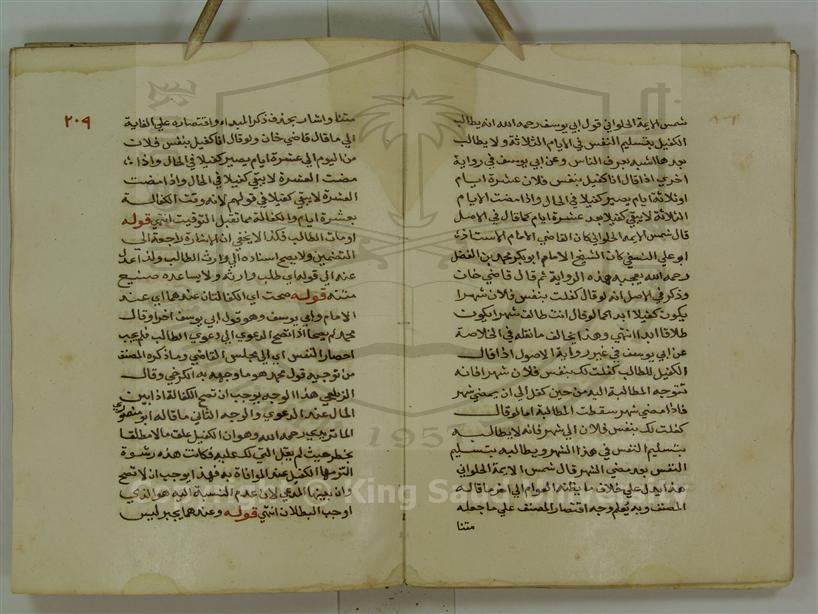 شمس الايمة الحلواني قول ابي يوسف رحمه الله انه يطالب
الكفيل بتسليم النفس في الايام الثلاثة ولا يطالب
بعدها اشبه بعرف الناس وعن ابي يوسف في رواية
اخري اذا قال انا كفيل بنفس فلان عشرة ايام
او ثلاثة ايام يصير كفيلا في الحال واذا مضت الايام
الثلاثة لا يبقي كفيلا بعد عشرة ايام كما قال في الاصل
قال شمس الايمة الحلواني كان القاضي الامام الاستاذ
ابو علي النسفي كان الشيخ الامام ابو بكر محمد بن الفضل
رحمه الله يعجبه هذه الرواية ثم قال قاضي خان
وذكر في الاصل انه لو قال كفلت بنفس فلان شهرا
يكون كفيلا ابدا كما لو قال انت طالق شهرا يكون
طلاقا ابدا انتهي وهذا يخالف ما نقله في الخلاصة
عن ابي يوسف في غير رواية الاصول اذا قال
الكفيل للطالب كفلت لك بنفس فلان شهرا فانه
تتوجه المطالبة اليه من حين كفل الي ان يمضي شهر
فاذا مضي شهر سقطت المطالبة اما لو قال
كفلت لك بنفس فلان الي شهر فانه لا يطالبه
بتسليم النفس في هذا الشهر ويطالبه بتسليم
النفس بعد مضي الشهر قال شمس الايمة الحلواني
هذا يدل علي خلاف ما يظنه العوام الي اخر ما قاله
المصنف وبه يعلم وجه اقتصار المصنف علي ما جعله
متنا
٢٠٩
متنا واشار بحذف ذكر المبداء واقتصاره علي الغاية
الي ما قال قاضي خان ولو قال انا كفيل بنفس فلان
من اليوم الي عشرة ايام يصير كفيلا في الحال واذا
مضت العشرة لا يبقي كفيلا في الحال واذا مضت
العشرة لا يبقي كفيلا في قولهم لانه وقت الكفالة
بعشرة ايام والكفالة مما تقبل التوقيت انتهي قوله
او مات الطالب فكذا لا يخفي ان الاشارة راجعة الي
التضمين ولا يصح اسناده الي وارث الطالب ولذا عدل
عنه الي قوله اي طلب وارثه ولا يساعده صنيع
متنه قوله صحت اي الكفالتان عندهما اي عند
الامام وابي يوسف وهو قول ابي يوسف اخرا وقال
محمد لم يصحا اذا لم تصح الدعوي اي دعوي الطالب فلم يجب
احضار النفس اي الي مجلس القاضي وما ذكره المصنف
من توجيه قول محمد هو ما وجهه به الكرخي وقال
الزيلعي هذا الوجه يوجب ان تصح الكفالة اذا بين
المال عند الدعوي والوجه الثاني ما قاله ابو منصور
الماتريدي رحمه الله وهو ان الكفيل علق مالا مطلقا
بخطر حيث لم يقل التي لك عليه فكانت هذه رشوة
التزمها الكفيل عند الموافاة به فهذا يوجب ان لا تصح
وان بينها المدعي لان عدم النسبة اليه هو الذي
اوجب البطلان انتهي قوله وعندهما يجبر ليس
King Saud University
1957